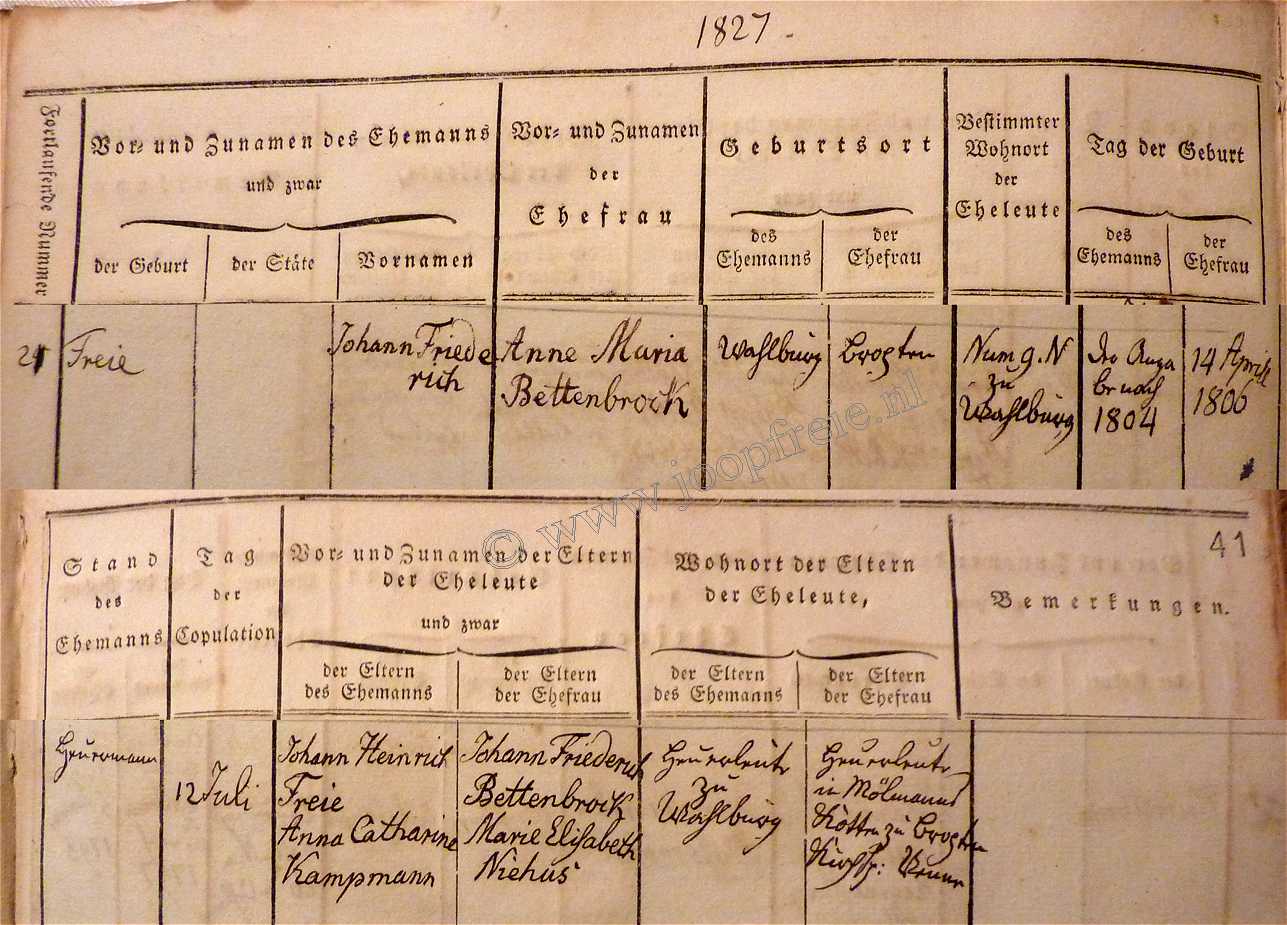 1827.
Fortlaufende Nummer
Vor- und Zunamen des Ehemanns
und zwar
der Geburt
der Stäte
Vornamen
Vor- und Zunamen
der
Ehefrau
Geburtsort
des
Ehemanns
der
Ehefrau
Bestimmter
Wohnort
der
Eheleute
Tag der Geburt
des
Ehemanns
der
Ehefrau
21
Freie
Johann Friede
rich
Anne Maria
Bettenbrock
Wahlburg
Num 9. N
zu
Wahlburg
der Anga
be nach
1804
14 April
1806
© www.joopfreie.nl
41
Stand
des
Ehemanns
Tag
der
Copulation
Vor- und Zunamen der Eltern
der Eheleute
und zwar
der Eltern
des Ehemanns
der Eltern
der Ehefrau
Wohnort der Eltern
der Eheleute,
der Eltern
des Ehemanns
der Eltern
der Ehefrau
Bemerkungen.
Heuermann
12 Juli
Johann Heinrich
Freie
Anna Catharine
Kampmann
Johann Friederich
Bettenbrock
Marie Elisabeth
Niehus
Heuerleute
zu
Wahlburg
Heuerleute
in Mölmanns
Kotten zu
Kirchsp: